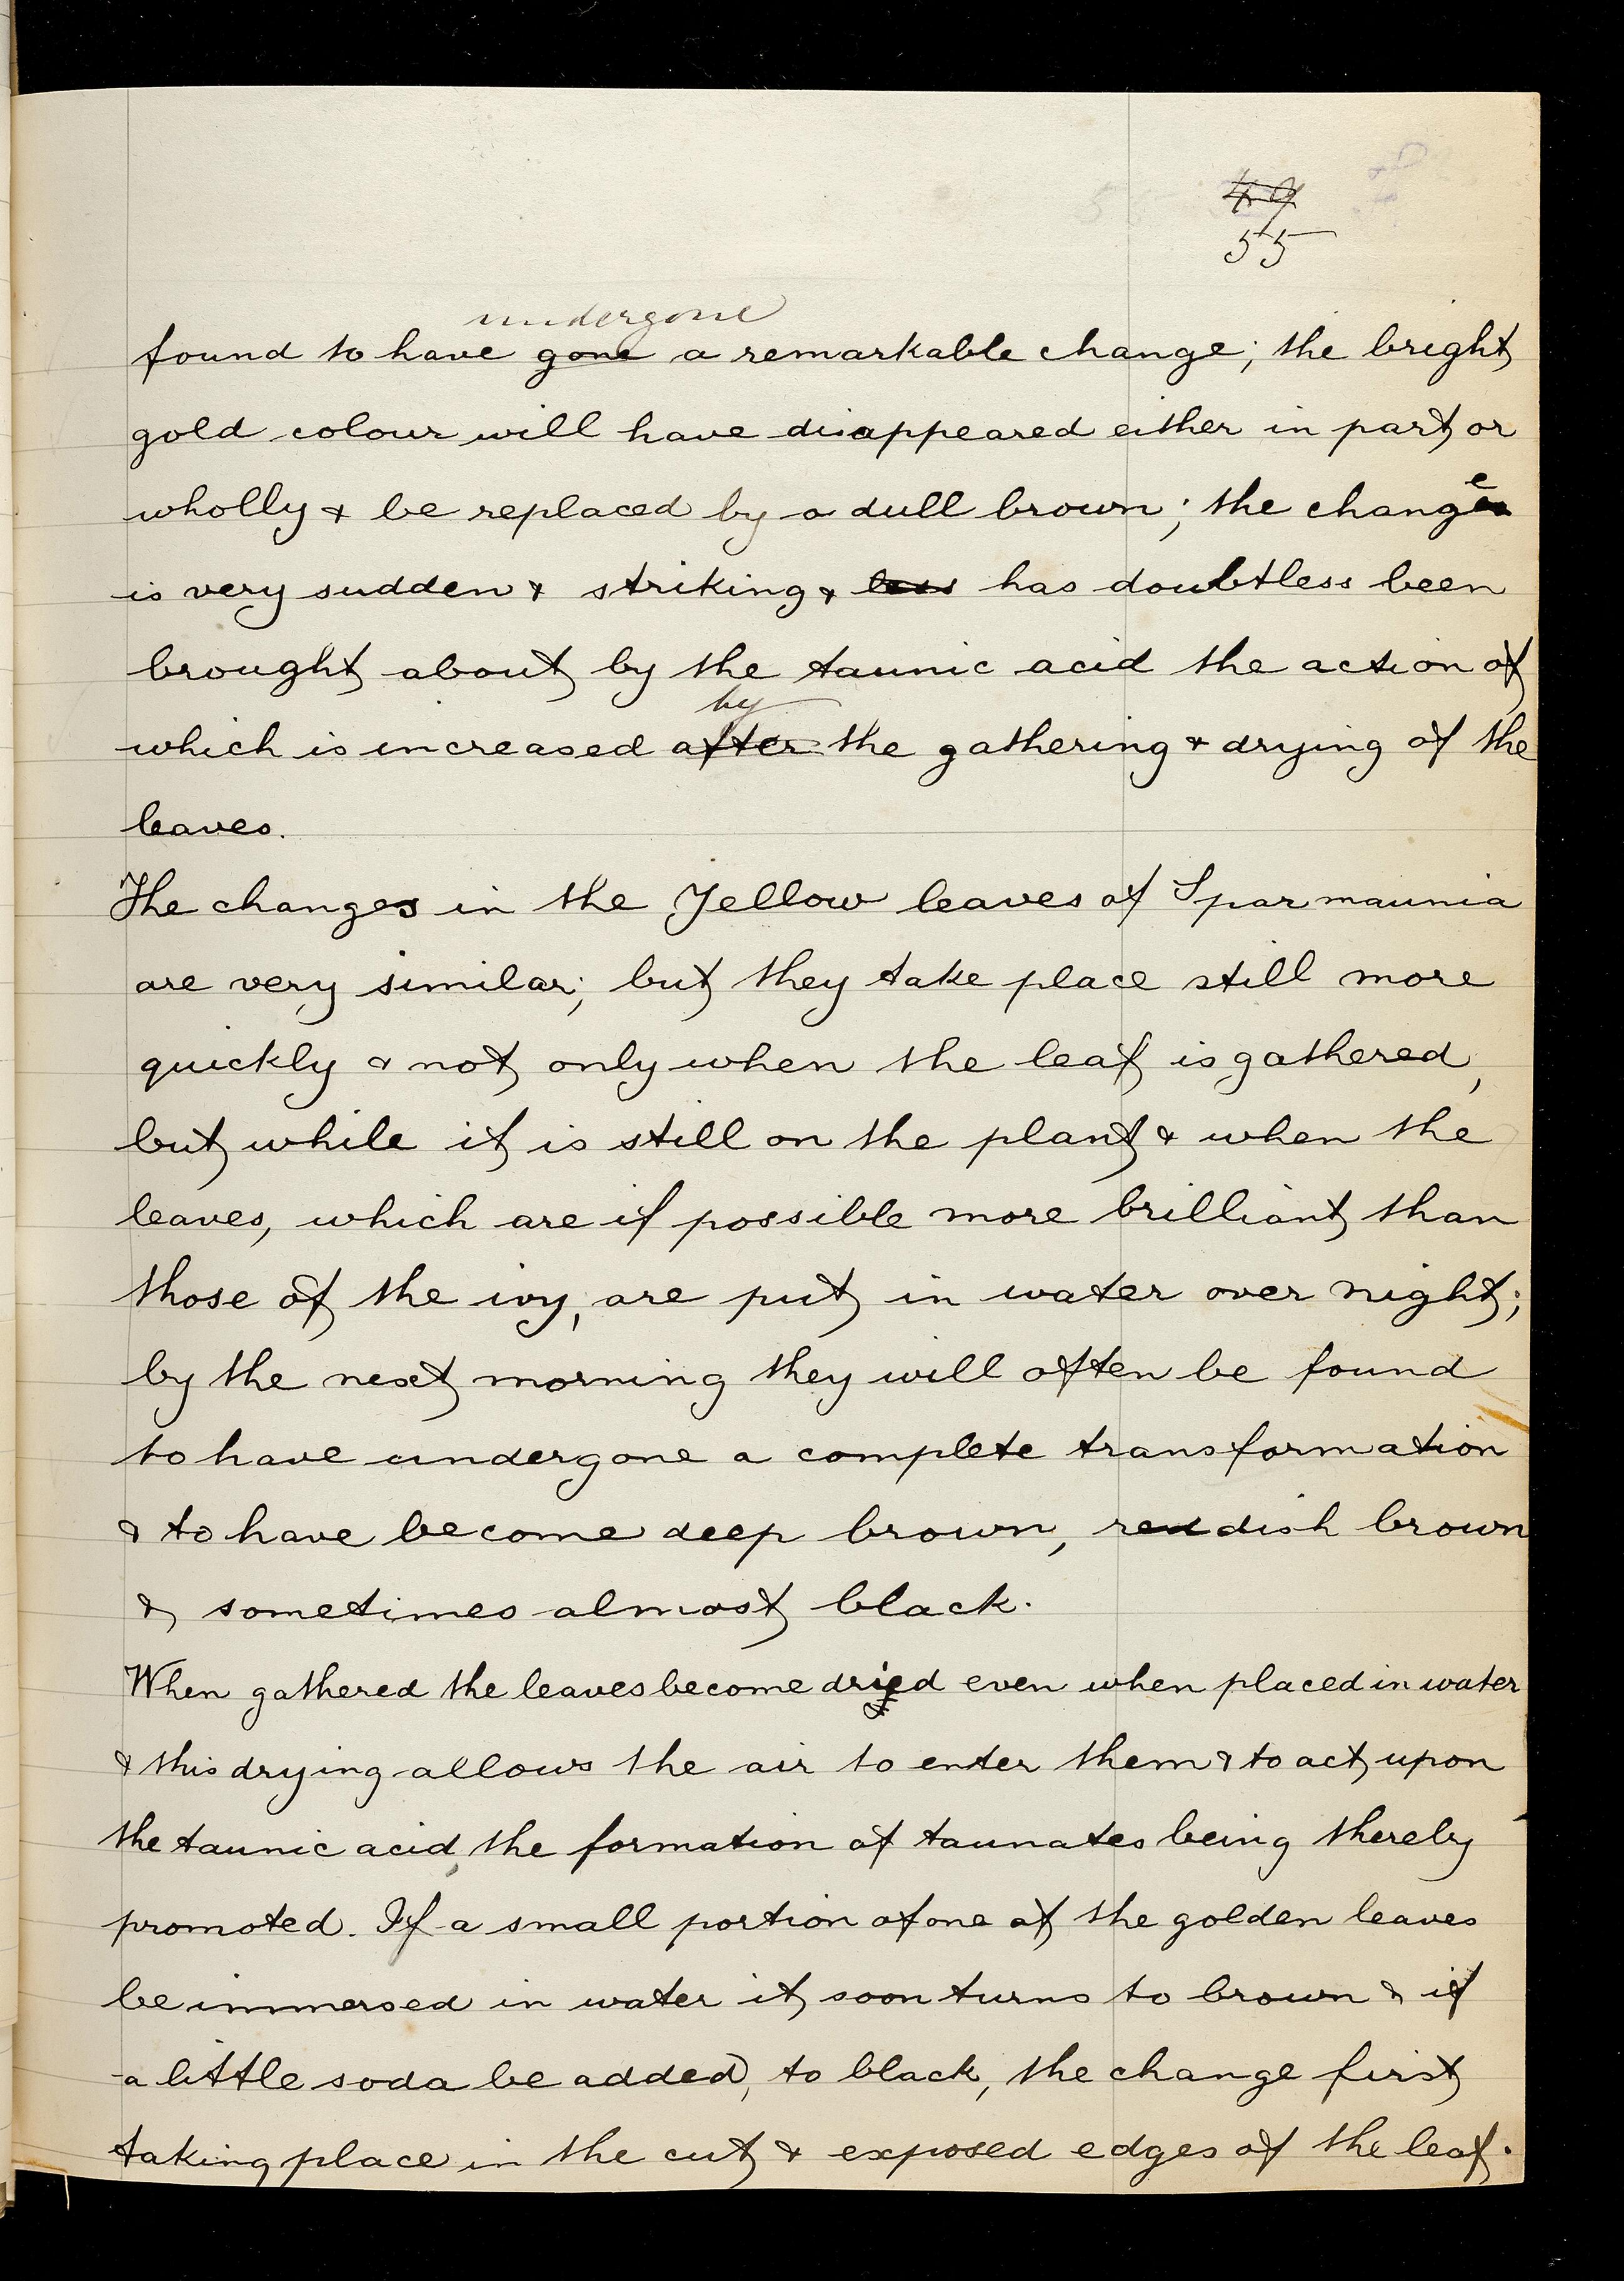 49
55
undergone
found to have gone a remarkable change; the bright
gold colour will have disappeared either in part or
wholly & be replaced by a dull brown; the change
is very sudden & striking & less has doubtless been
brought about by the taunic acid the action of
by
which is increased after the gathering & drying of the
leaves.
The changes in the Yellow leaves of Sparmaunia
are very similar; but they take place still more
quickly & not only when the leaf is gathered,
but while it is still on the plant & when the
leaves, which are if possible more brilliant than
those of the ivy, are put in water over night;
by the next morning they will often be found
to have undergone a complete transformation
& to have become deep brown, reddish brown
& sometimes almost black.
When gathered the leaves become dried even when placed in water
& this drying allows the air to enter them & to act upon
the taunic acid, the formation of taunates being thereby
promoted. If a small portion of one of the golden leaves
be immersed in water it soon turns to brown & if
a little soda be added, to black, the change first
taking place in the cut & exposed edges of the leaf.